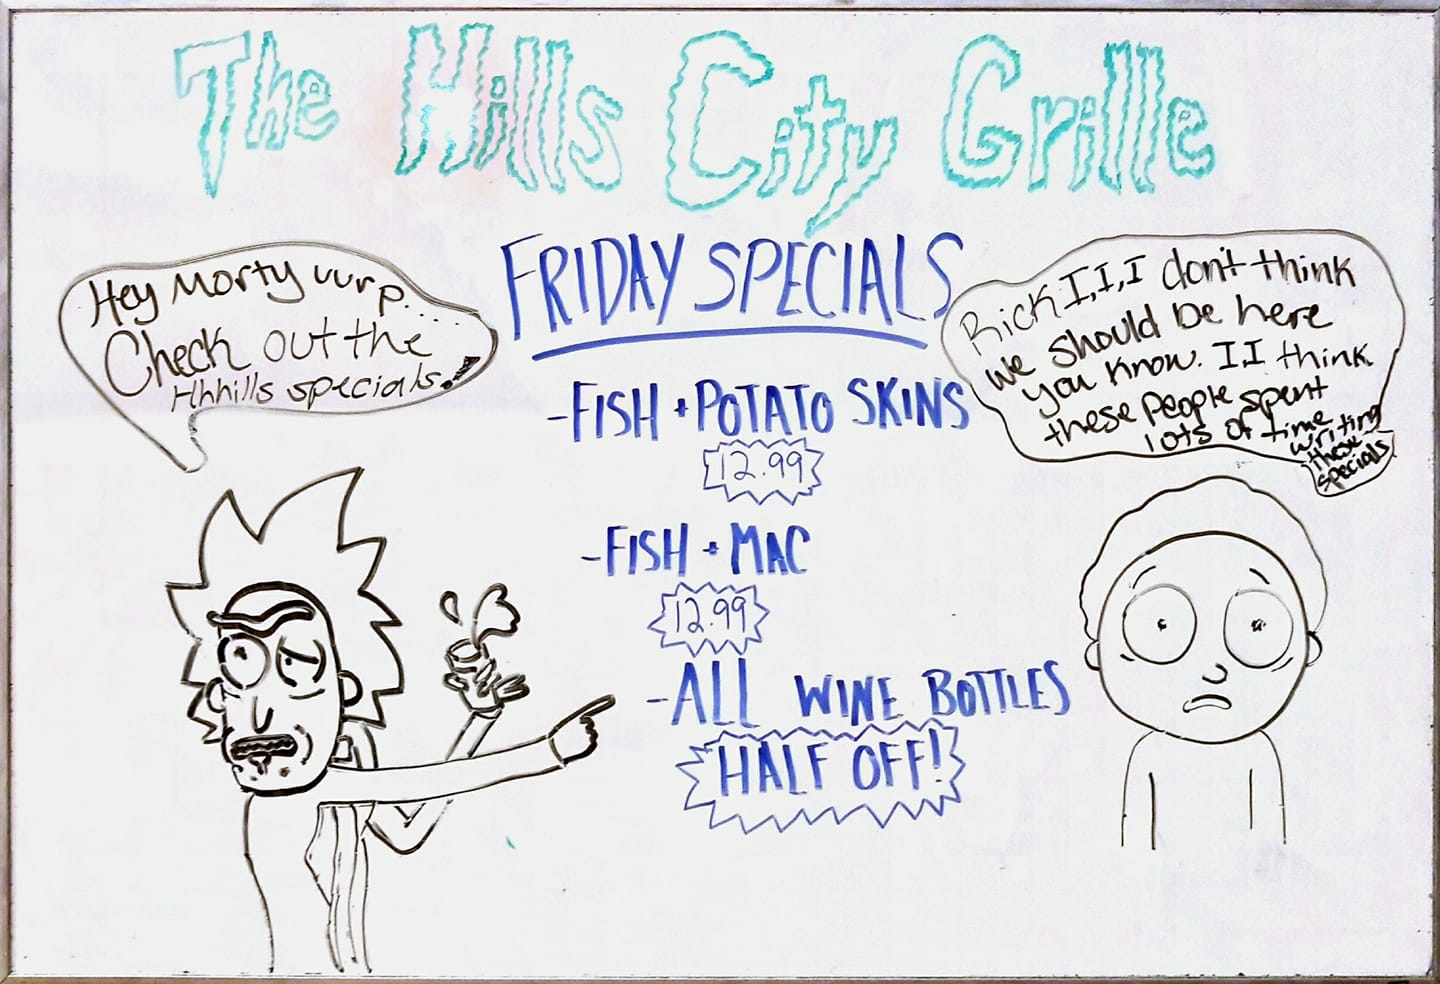 The Hills City Grille
FRIDAY SPECIALS
Hey Morty uurp...
Check out the
Hhhills specials!
Rick I, I, I don't think
we should be here
you know. I, I think
these people spent
lots of time
writing
these
specials
-FISH + POTATO SKINS
12.99
-FISH + MAC
12.99
-ALL WINE BOTTLES
HALF OFF!